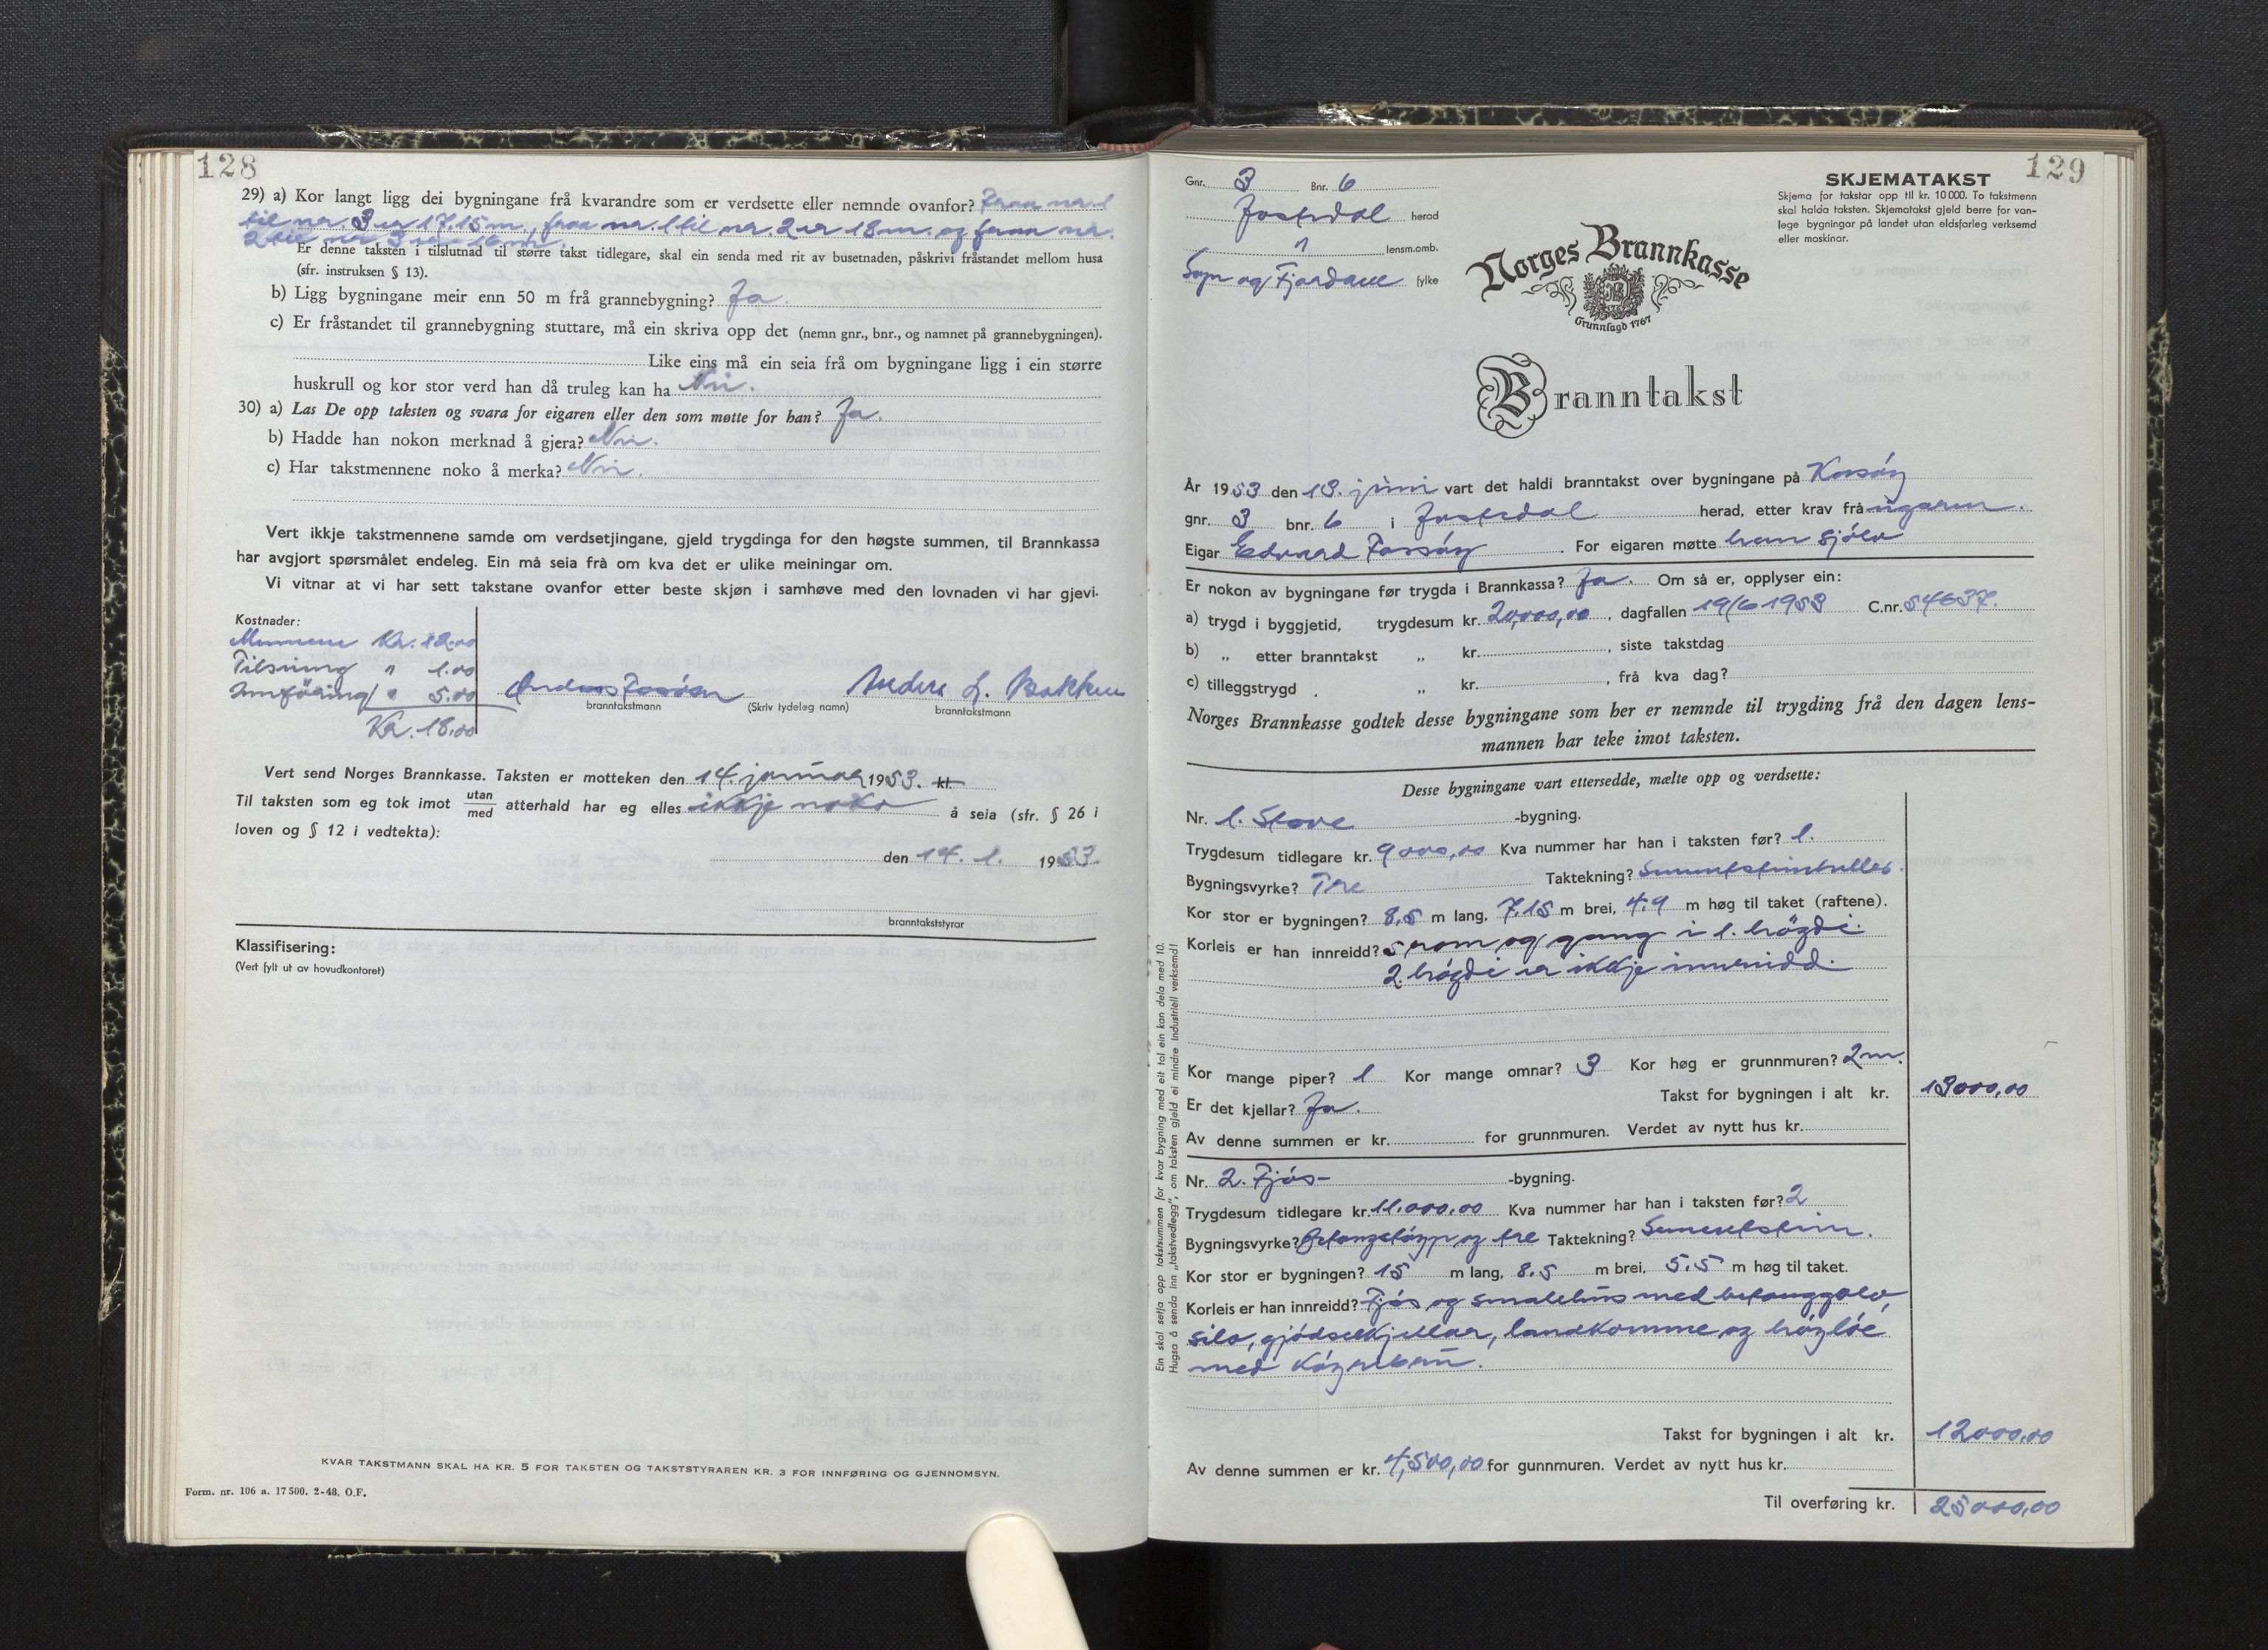 128
29) a) Kor langt ligg dei bygningane frå kvarandre som er verdsette eller nemnde ovanfor? Fraa nr. 1
til nr. 3 er 17.15 m., fraa nr. 1 til nr. 2 er 18 m. og fraa nr.
2 til nr 3 er 16 m.
Er denne taksten i tilslutnad til større takst tidlegare, skal ein senda med rit av busetnaden, påskrivi fråstandet mellom husa
(sfr. instruksen § 13).
b) Ligg bygningane meir enn 50 m frå grannebygning? Ja
c) Er fråstandet til grannebygning stuttare, må ein skriva opp det (nemn gnr., bnr., og namnet på grannebygningen).
Like eins må ein seia frå om bygningane ligg i ein større
huskrull og kor stor verd han då truleg kan ha Nei.
30) a) Las De opp taksten og svara for eigaren eller den som møtte for han? Ja.
b) Hadde han nokon merknad å gjera? Nei.
c) Har takstmennene noko å merka? Nei.
Vert ikkje takstmennene samde om verdsetjingane, gjeld trygdinga for den høgste summen, til Brannkassa
har avgjort spørsmålet endeleg. Ein må seia frå om kva det er ulike meiningar om.
Vi vitnar at vi har sett takstane ovanfor etter beste skjøn i samhøve med den lovnaden vi har gjevi.
Kostnader:
Mennene Kr. 12.00
Tilsining " 1.00
Innföring " 5.00
Kr. 18.00
Anders Fossøen
Anders L. Bakken
branntakstmann (Skriv tydeleg namn) branntakstmann
Vert send Norges Brannkasse. Taksten er motteken den 14. januar 1953. kl.
Til taksten som eg tok imot utan/med atterhald har eg elles ikkje noko å seia (sfr. § 26 i
loven og § 12 i vedtekta):
den 14. 1. 1953.
branntakststyrar
Klassifisering:
(Vert fylt ut av hovudkontoret)
KVAR TAKSTMANN SKAL HA KR. 5 FOR TAKSTEN OG TAKSTSTYRAREN KR. 3 FOR INNFØRING OG GJENNOMSYN.
Form. nr. 106 a. 17 500. 2-48. O.F.
129
Gnr. 3 Bnr. 6
Jostedal herad
" lensm.omb.
Sogn og Fjordane fylke
SKJEMATAKST
Skjema for takstar opp til kr. 10 000. To takstmenn
skal halda taksten. Skjematakst gjeld berre for van-
lege bygningar på landet utan eldsfarleg verksemd
eller maskinar.
Norges Brannkasse
Grunnlagd 1767
Branntakst
År 1953 den 13. juni vart det haldi branntakst over bygningane på Kossøy
gnr. 3 bnr. 6 i Jostedal herad, etter krav frå eigaren.
Eigar Edvard Fossøy. For eigaren møtte han sjölv
Er nokon av bygningane før trygda i Brannkassa? Ja. Om så er, opplyser ein:
a) trygd i byggjetid, trygdesum kr. 20,000,00, dagfallen 19/6 1953 C.nr. 54637.
b) „ etter branntakst „ kr. , siste takstdag
c) tilleggstrygd . „ kr. , frå kva dag?
Norges Brannkasse godtek desse bygningane som her er nemnde til trygding frå den dagen lens-
mannen har teke imot taksten.
Desse bygningane vart ettersedde, mælte opp og verdsette:
Nr. 1. Stove -bygning.
Trygdesum tidlegare kr. 9000,00 Kva nummer har han i taksten før? 1.
Bygningsvyrke? Tre Taktekning? Sementsteinheller.
Kor stor er bygningen? 8,5 m lang, 7.15 m brei, 4.9 m høg til taket (raftene).
Korleis er han innreidd? 5 rom og gang i 1. högdi.
2. högdi er ikkje innreidd.
Kor mange piper? 1 Kor mange omnar? 3 Kor høg er grunnmuren? 2 m.
Er det kjellar? Ja. Takst for bygningen i alt kr. 13000,00
Av denne summen er kr. for grunnmuren. Verdet av nytt hus kr.
Nr. 2. Fjös- -bygning.
Trygdesum tidlegare kr. 11.000,00 Kva nummer har han i taksten før? 2
Bygningsvyrke? Betongstöyp og tre Taktekning? Sementstein.
Kor stor er bygningen? 15 m lang, 8.5 m brei, 5.5 m høg til taket.
Korleis er han innreidd? Fjös og smalehus med betonggolv,
silo, gjödselkjellar, landkomme og höyløe
med köyrebru.
Takst for bygningen i alt kr. 12000,00
Av denne summen er kr. 4,500,00 for gunnmuren. Verdet av nytt hus kr.
Til overføring kr. 25000,00
Ein skal setja opp takstsummen for kvar bygning med eit tal ein kan dela med 10.
Hugsa å senda inn „takstvedlegg", om taksten gjeld ei mindre industriell verksemd!